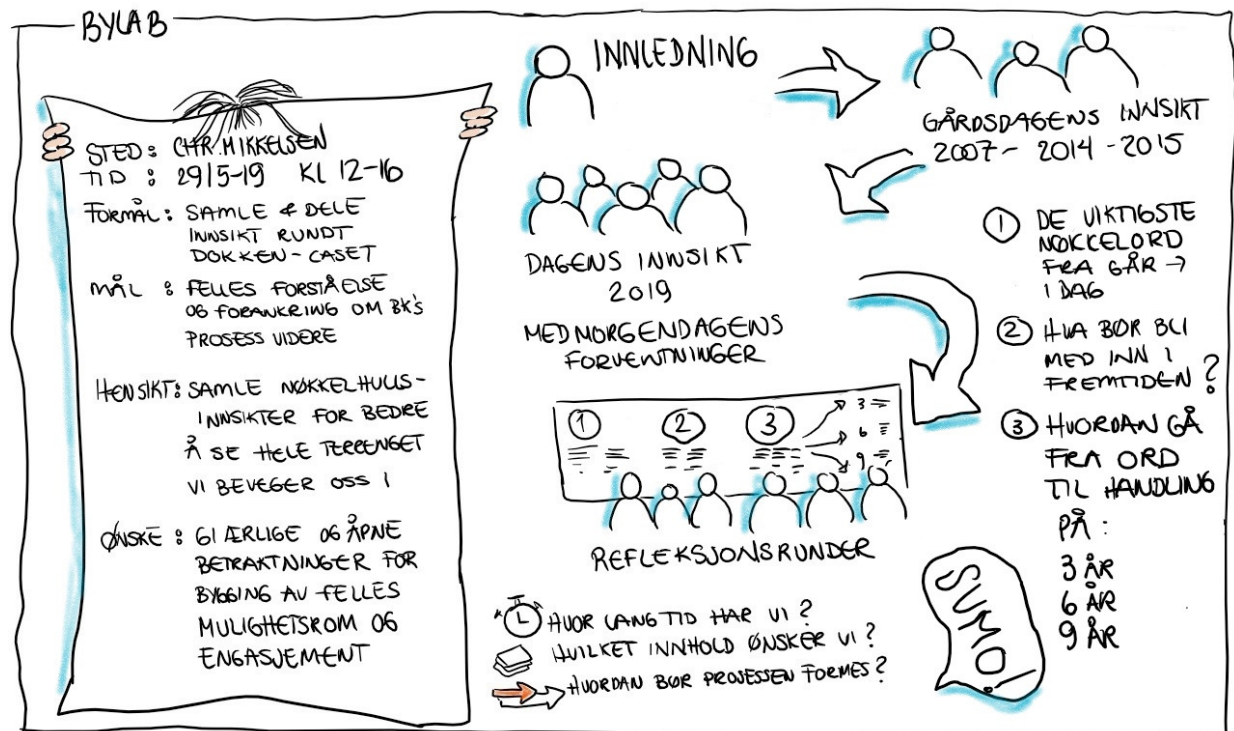 BYLAB
STED: CHR. MIKKELSEN
TID : 29/5-19 KL 12-16
FORMÅL: SAMLE & DELE
INNSIKT RUNDT
DOKKEN-CASET
MÅL : FELLES FORSTÅELSE
OG FORANKRING OM BK'S
PROSESS VIDERE
HENSIKT: SAMLE NØKKELHULLS-
INNSIKTER FOR BEDRE
Å SE HELE TERRENGET
VI BEVEGER OSS I
ØNSKE: GI ÆRLIGE OG ÅPNE
BETRAKTNINGER FOR
BYGGING AV FELLES
MULIGHETSROM OG
ENGASJEMENT
INNLEDNING
GÅRDSDAGENS INNSIKT
2007 - 2014 - 2015
DAGENS INNSIKT
2019
MED MORGENDAGENS
FORVENTNINGER
1 2 3
3
6
9
REFLEKSJONSRUNDER
HVOR LANG TID HAR VI?
HVILKET INNHOLD ØNSKER VI?
HVORDAN BØR PROSESSEN FORMES?
1 DE VIKTIGSTE
NØKKELORD
FRA GÅR →
I DAG
2 HVA BØR BLI
MED INN I
FREMTIDEN?
3 HVORDAN GÅ
FRA ORD
TIL HANDLING
PÅ:
3 ÅR
6 ÅR
9 ÅR
SUMO!